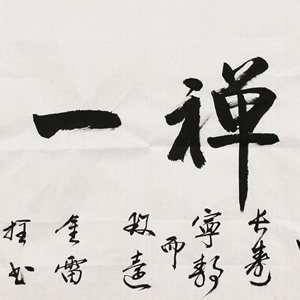 禅一
长寿
宁静
而
致远
金雷
书